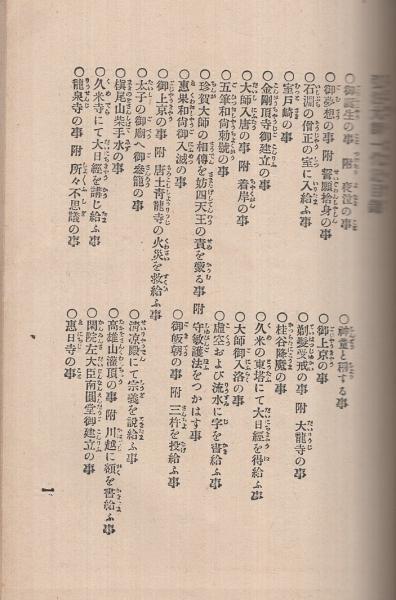 ○御誕生の事 附 夜泣の事
○神童と稱する事
○御夢想の事 附 誓願捨身の事
○御上京の事
○石淵の僧正の室に入給ふ事
○剃髮受戒の事 附 大龍寺の事
○室戸崎の事
○桂谷降魔の事
○金剛頂寺御建立の事
○久米の東塔にて大日經を得給ふ事
○大師入唐の事 附 着岸の事
○大師御入洛の事
○五筆和尚勅號の事
○虚空および流水に字を書給ふ事
○珍賀大師の相傳を妨四天王の責を蒙る事 附
守敏護法をつかはす事
○惠果和尚御入滅の事
○御皈朝の事 附 三杵を投給ふ事
○御上京の事 附 唐土青龍寺の火災を救給ふ事
○太子の御廟へ御參籠の事
○清凉殿にて宗義を説給ふ事
○槇尾山柴手水の事
○高雄山灌頂の事 附 川越に額を書給ふ事
○久米寺にて大日經を講じ給ふ事
○閑院左大臣南圓堂御建立の事
○龍泉寺の事 附 所々不思議の事
○惠日寺の事
一